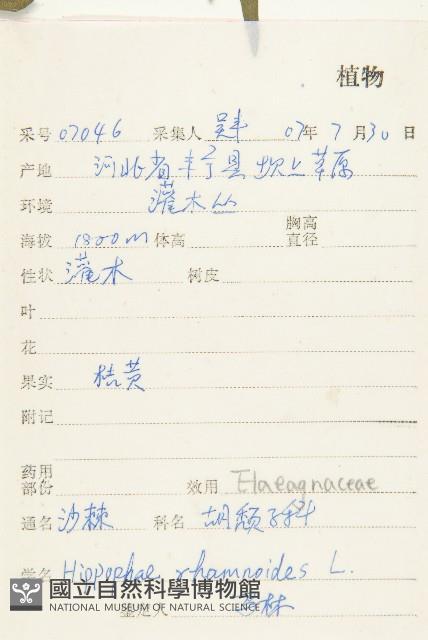 植物
采号 07046 采集人 吴丰 07年 7 月30日
产地 河北省丰宁县坝上草原
环境 灌木丛
海拔 1800m 体高 胸高直径
性状 灌木 树皮
叶
花
果实 桔黄
附记
药用部份 效用 Elaeagnaceae
通名 沙棘 科名 胡颓子科
学名 Hippophae rhamnoides L.
國立自然科學博物館
NATIONAL MUSEUM OF NATURAL SCIENCE
鉴定人 林